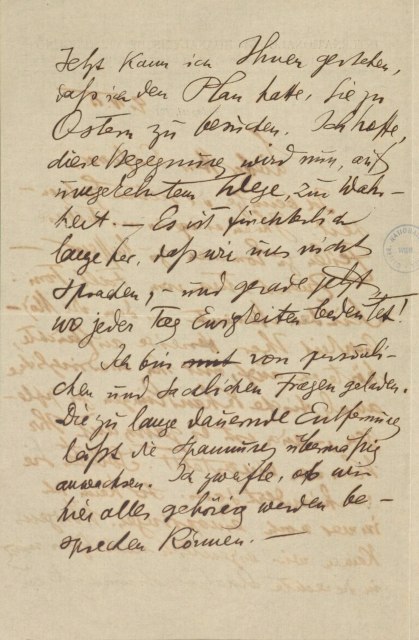 Jetzt kann ich Ihnen gestehen,
daß ich den Plan hatte, Sie zu
Ostern zu besuchen. Ich hoffe,
diese Begegnung wird nun, auf
umgekehrtem Wege, zur Wahr-
heit. — Es ist fürchterlich
lange her, daß wir uns nicht
sprachen, – und gerade jetzt,
wo jeder Tag Ewigkeiten bedeutet!
Ich bin mit von persönli-
chen und sachlichen Fragen geladen.
Die zu lange dauernde Entfernung
läßt die Spannung übermäßig
anwachsen. Ich zweifle, ob wir
hier alles gehörig werden be-
sprechen können. —